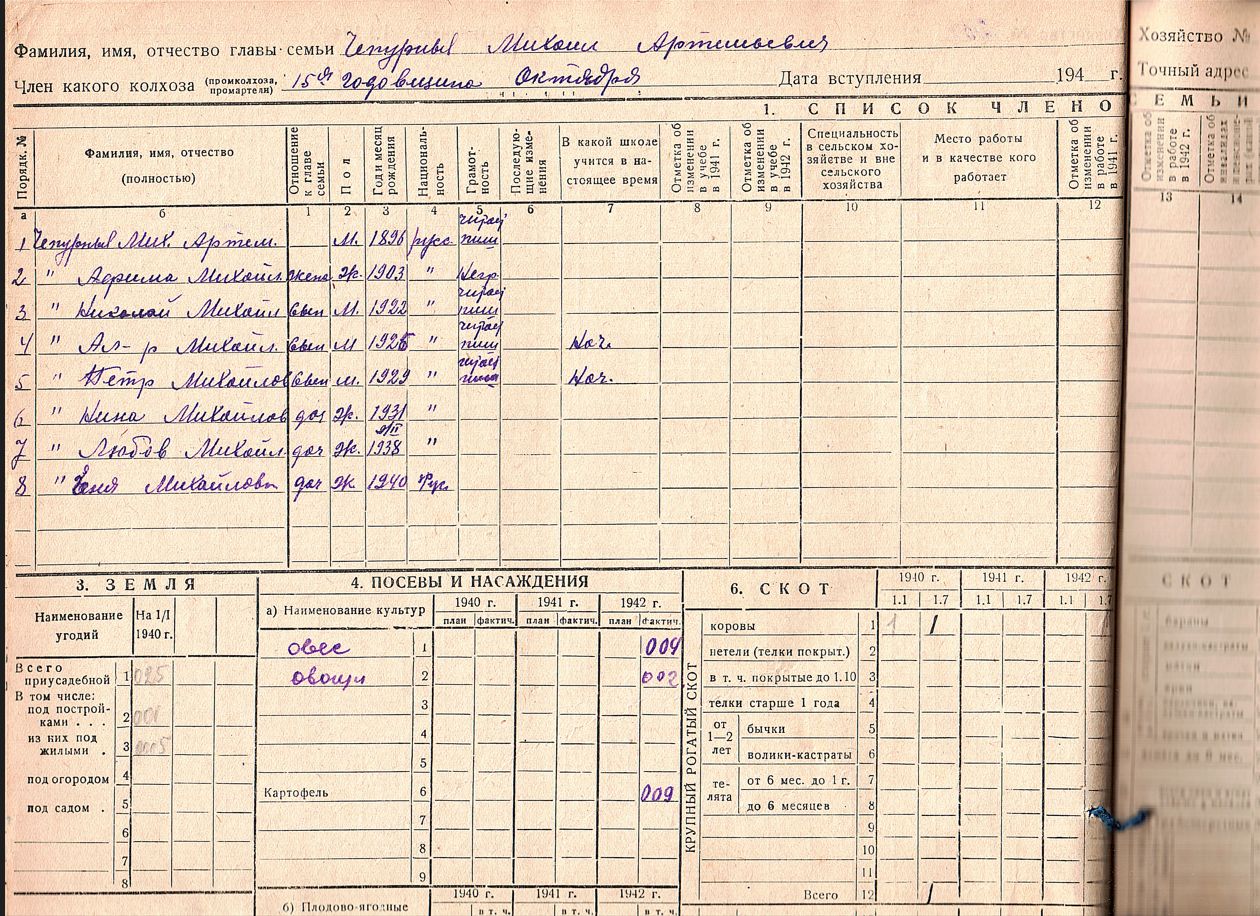 Фамилия, имя, отчество главы семьи Чепурный Михаил Артемьевич
Член какого колхоза (промколхоза, промартели) 15ая годовщина Октября Дата вступления 194 г.
Хозяйство №
Точный адрес
1. СПИСОК ЧЛЕНО
ЕМЬИ
Порядк. №
Фамилия, имя, отчество (полностью)
Отношение к главе семьи
Пол
Год и месяц рождения
Националь-ность
Грамот-ность
Последую-щие изме-нения
В какой школе учится в на-стоящее время
Отметка об изменении в учебе в 1941 г.
Отметка об изменении в учебе в 1942 г.
Специальность в сельском хо-зяйстве и вне сельского хозяйства
Место работы и в качестве кого работает
Отметка об изменении в работе в 1941 г.
Отметка об изменении в работе в 1942 г.
а б 1 2 3 4 5 6 7 8 9 10 11 12 13 14
1 Чепурный Мих. Артем. М. 1896 русс. читает пиш
2 " Афима Михайл жена Ж. 1903 " Негр
3 " Николай Михайл сын М. 1922 " читает пиш
4 " Ал-р Михайл. сын М " читает пиш Нач.
5 " Петр Михайлов сын м. 1929 " читает пиш Нач.
6 " Нина Михайлов доч Ж. 1931 "
7 " Любов Михайл доч Ж. 1938 "
8 " Михайловн доч Ж 1940 Рус
3. ЗЕМЛЯ
Наименование угодий
На 1/I 1940 г.
Всего приусадебной 1 025
В том числе: под построй-ками . . . 2 001
из них под жилыми . 3 0005
под огородом 4
под садом . 5
6
7
8
4. ПОСЕВЫ И НАСАЖДЕНИЯ
а) Наименование культур
1940 г. 1941 г. 1942 г.
план фактич. план фактич. план фактич.
овес 1 004
овощи 2 002
3
4
5
Картофель 6 009
7
8
9
б) Плодово-ягодные
1940 г. 1941 г. 1942 г.
в т. ч. в т. ч. в т. ч.
6. СКОТ
1940 г. 1941 г. 1942 г.
1.1 1.7 1.1 1.7 1.1 1.7
КРУПНЫЙ РОГАТЫЙ СКОТ
коровы 1 1 1
нетели (телки покрыт.) 2
в т. ч. покрытые до 1.10 3
телки старше 1 года 4
от 1—2 лет
бычки 5
волики-кастраты 6
те-лята
от 6 мес. до 1 г. 7
до 6 месяцев 8
9
10
11
Всего 12 1
СКОТ